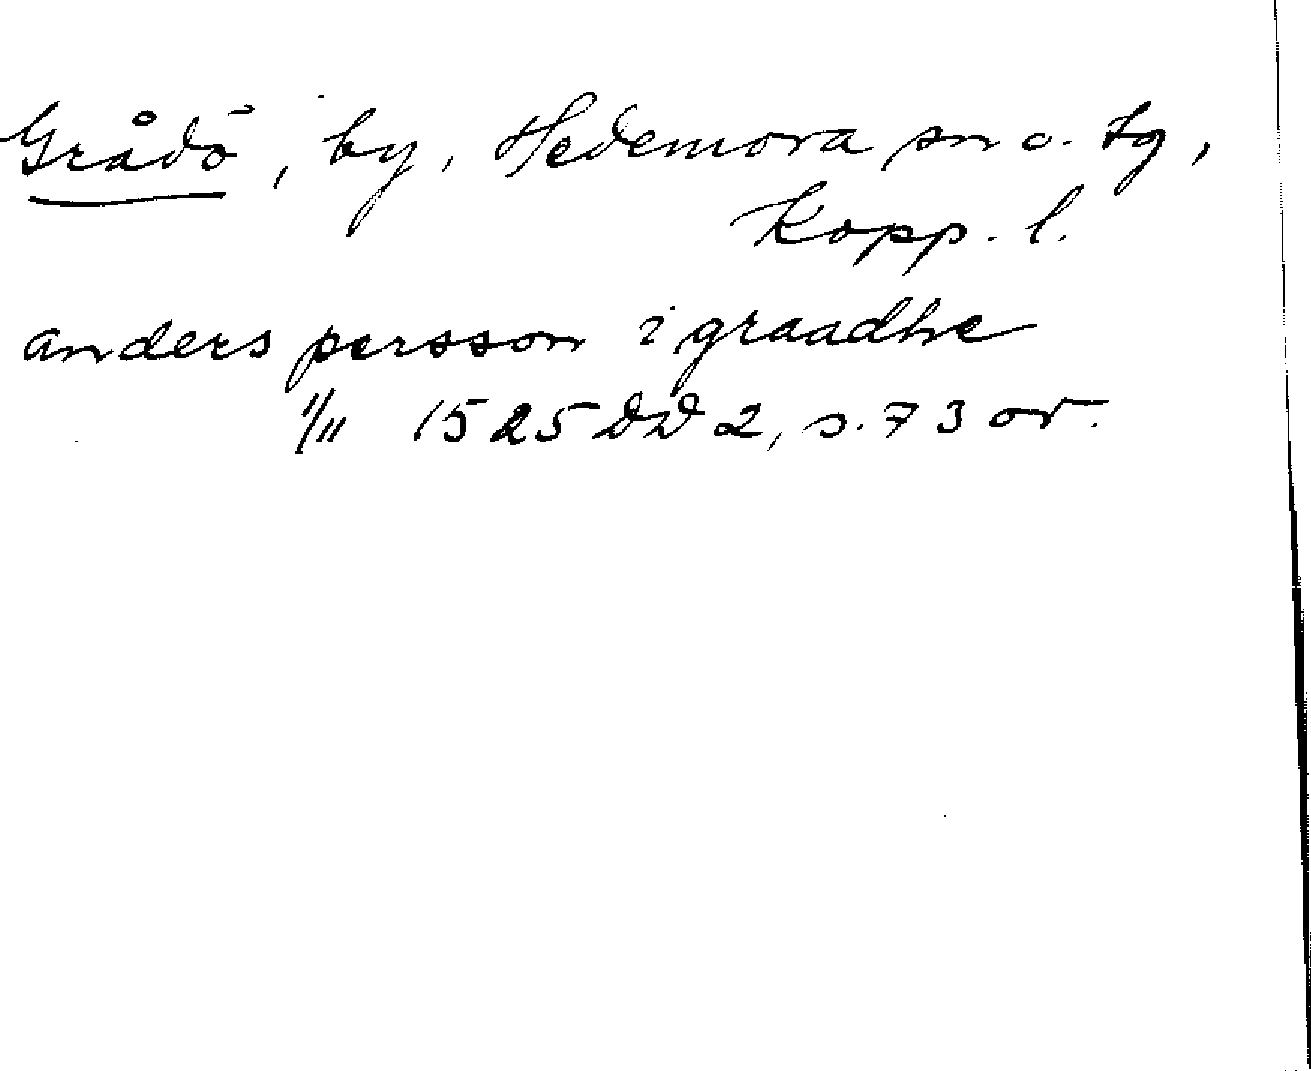 Grådö, by, Hedemora sn o. tg,
Kopp. l.
anders persson i graadhe
1/11 1525 DD 2, s. 73 or.